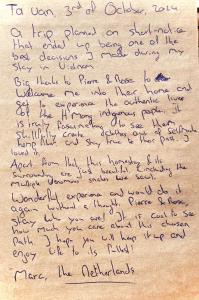 Ta Van, 3rd of October, 2024
A trip planned on short-notice
that ended up being one of the
best decisions I made during my
stay in Vietnam.
Big thanks to Pierre & Rose to
welcome me into their home and
get to experience the authentic lives
of the H'Mong indigenous people. It
is truly fascinating to see them
skillfully create clothes out of selfmade
hemp fiber and stay true to their past. I
loved it.
Apart from that this homestay & its
surrounding are just beautiful (including the
multiple venomous snakes we saw).
Wonderful experience and would do it
again without a thought. Pierre & Rose,
stay who you are! It is cool to see
how much you care about this chosen
path. I hope you will keep it up and
enjoy life to its fullest!
- Marc, the Netherlands